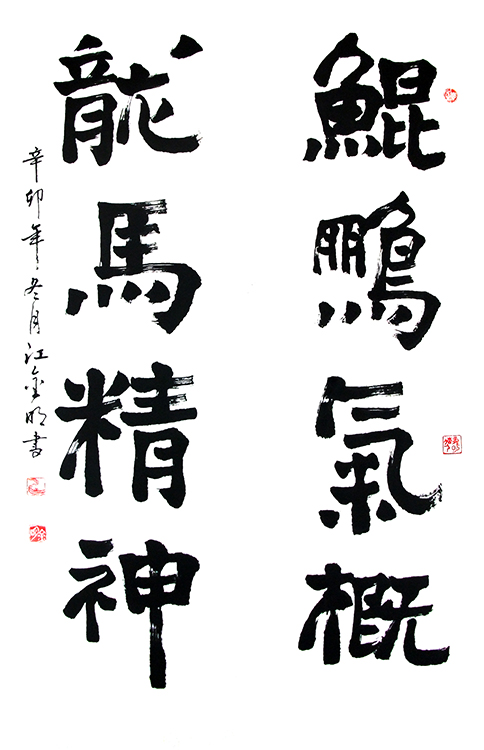 鯤鵬氣概
龍馬精神
辛卯年冬月江金明書